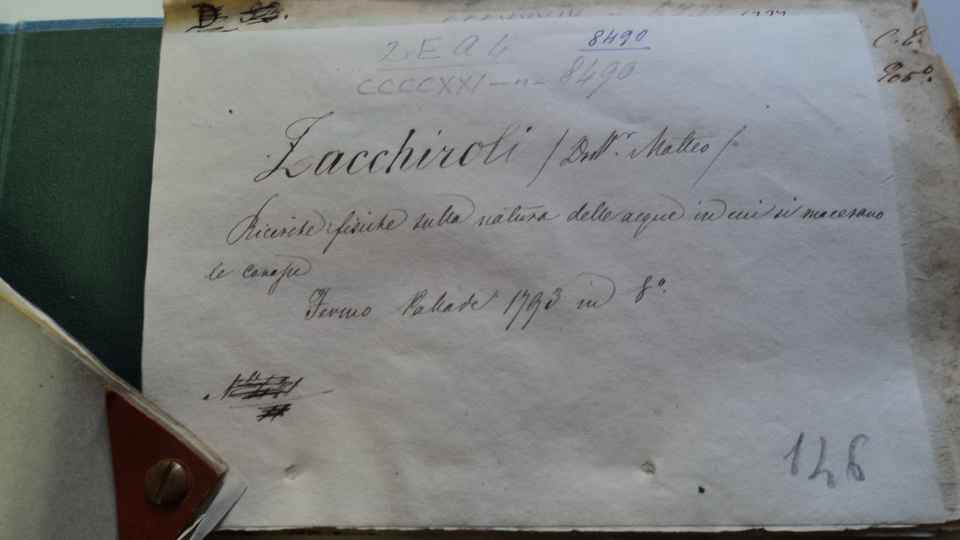 8490
2. E A 4
CCCCXXI-n-8490
Zacchiroli / Dott.r Matteo /
Ricerche fisiche sulla natura delle acque in cui si macerano
le canape
Fermo Pallade 1793 in 8º.
146